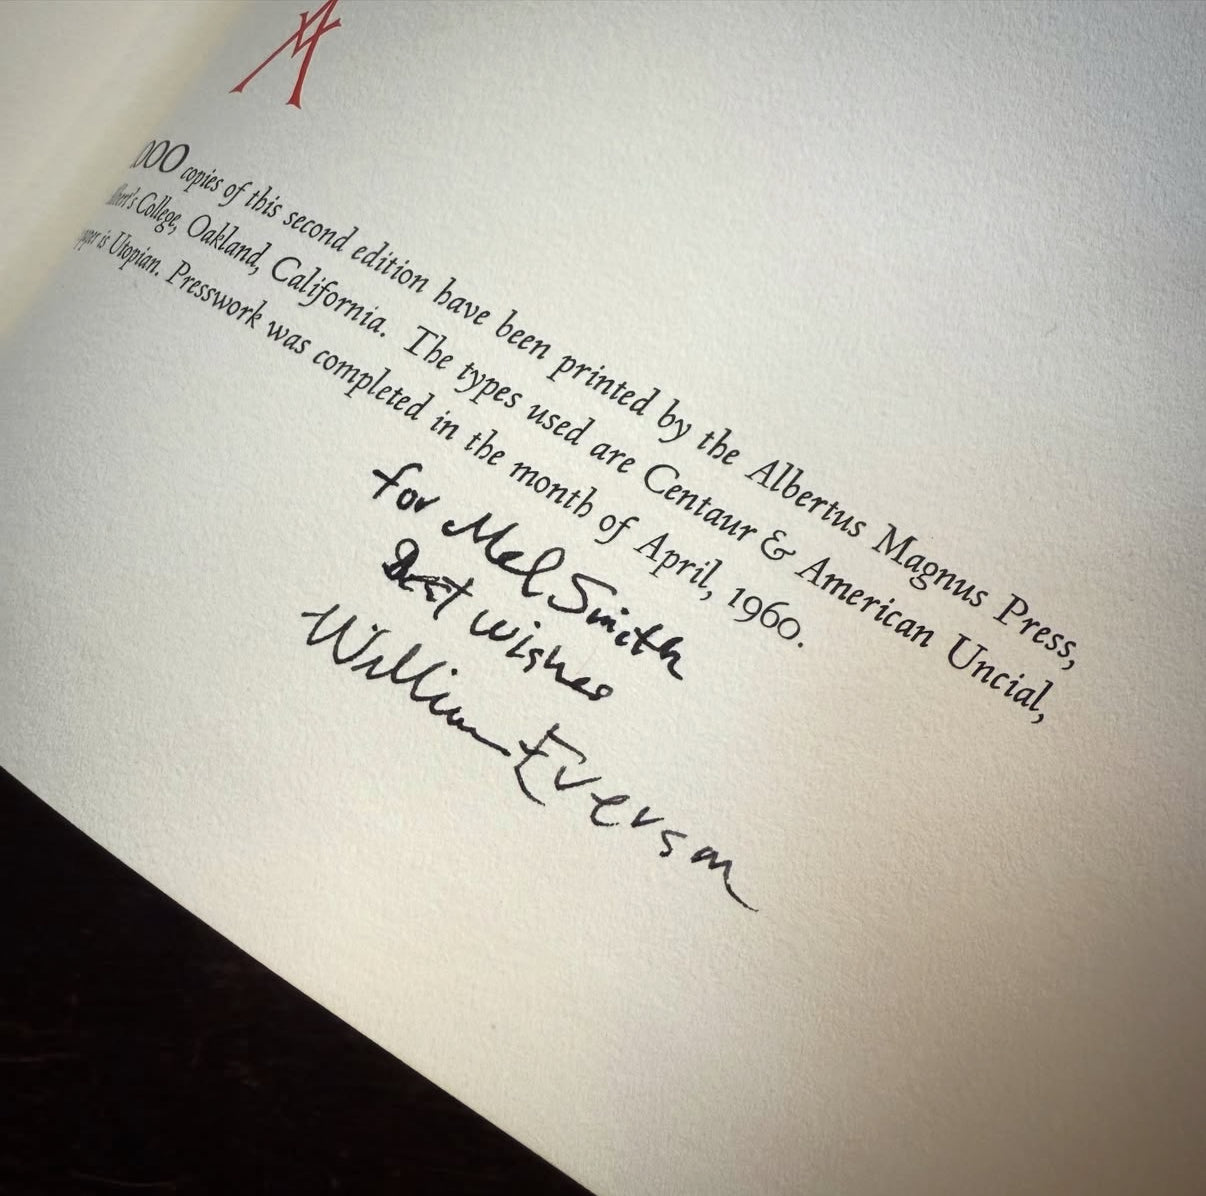 000 copies of this second edition have been printed by the Albertus Magnus Press,
Albert's College, Oakland, California. The types used are Centaur & American Uncial,
paper is Utopian. Presswork was completed in the month of April, 1960.
for Mel Smith
Best wishes
William Everson